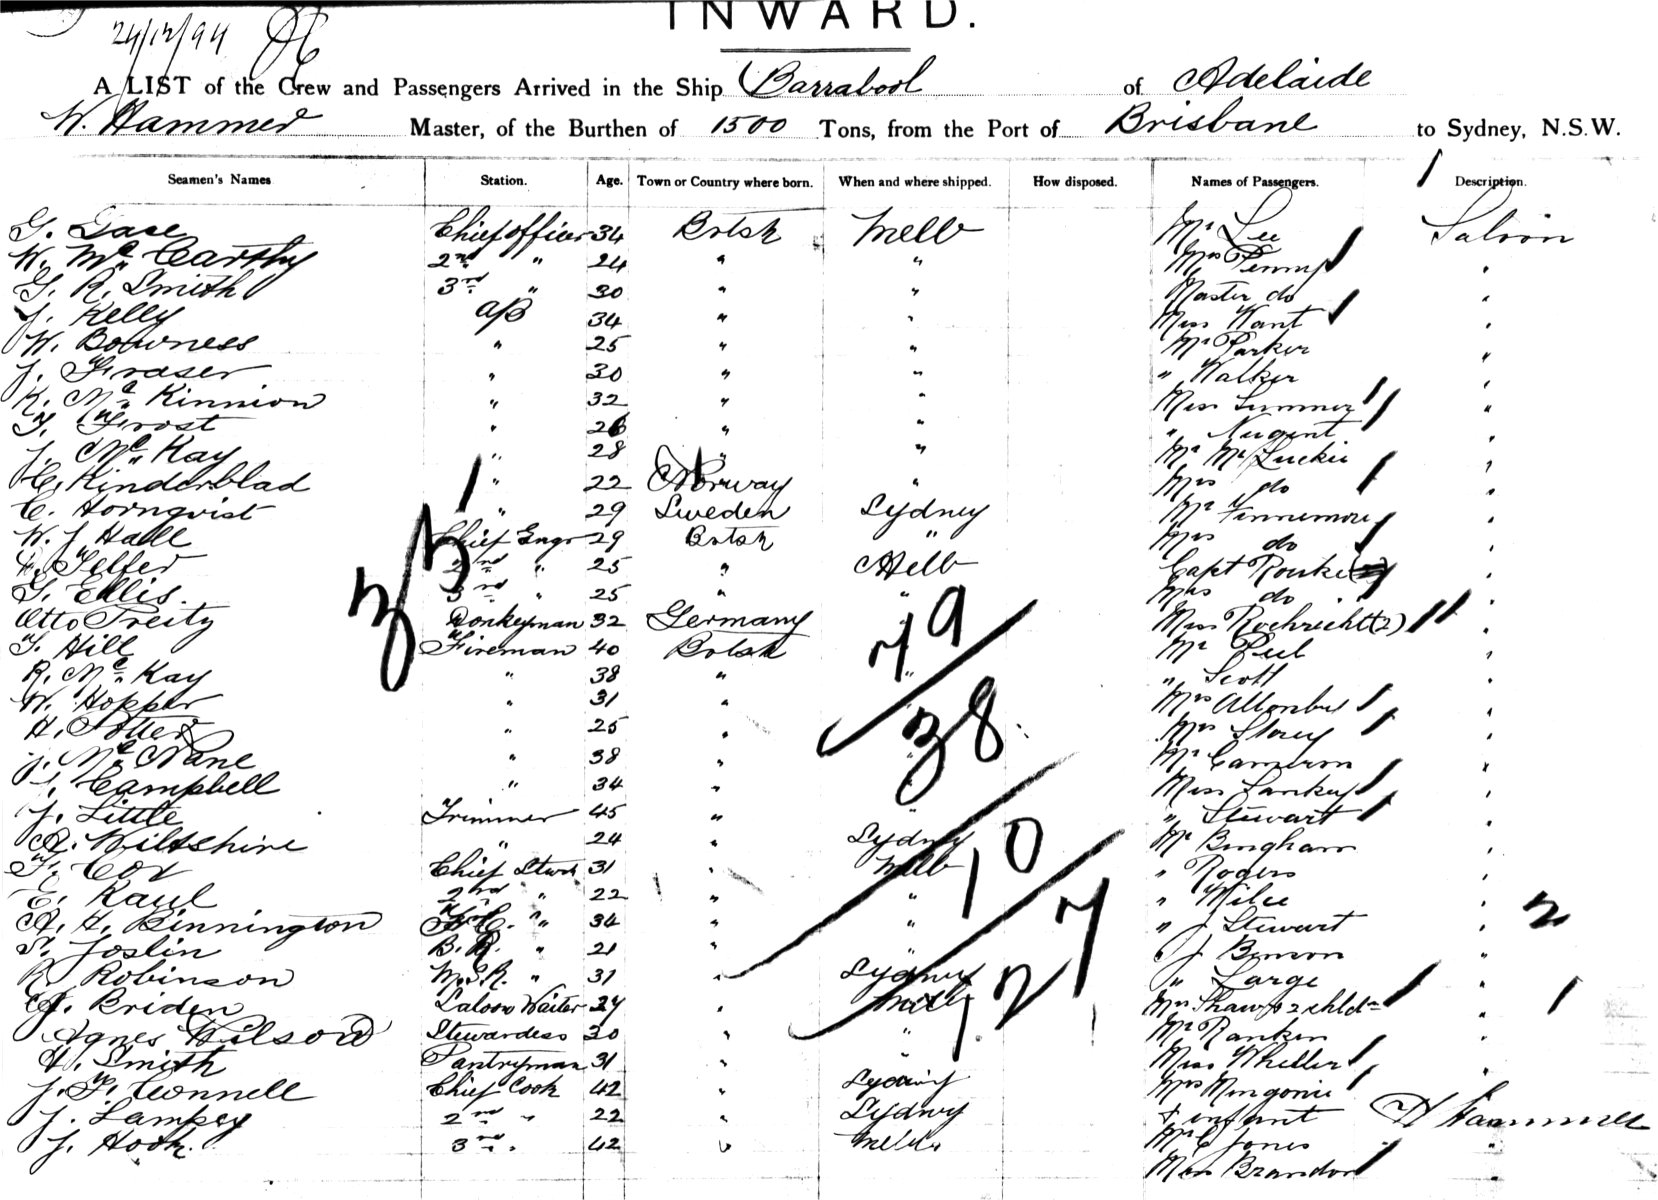 24/12/94
INWARD.
A LIST of the Crew and Passengers Arrived in the Ship Barrabool of Adelaide
W. Hammer Master, of the Burthen of 1500 Tons, from the Port of Brisbane to Sydney, N.S.W.
Seamen's Names Station. Age. Town or Country where born. When and where shipped. How disposed. Names of Passengers. Description.
G. Chief Officer 34 Brtsh Melb Mr Lee Saloon
W. McCarthy 2nd " 24 " " Mrs Penny "
G. R. Smith 3rd " 30 " " Master do "
J. Kelly A/B 34 " " Miss Want "
W. Bowness " 25 " " Mr Parker "
J. Fraser " 30 " " " Walker "
K. McKinnion " 32 " " Miss "
T. Frost " 26 " " " Nugent "
J. McKay " 28 " " Mr McLuckie "
C. Kinderblad " 22 Norway " Mrs do "
C. Hornqvist " 29 Sweden Sydney Mr Finnemore "
W. J. Hall Chief Engr 29 Brtsh " Mrs do "
Telfer 2nd " 25 " Melb Capt Rourke "
G. Ellis. 3rd " 25 " " Mrs do "
Otto Treity Donkeyman 32 Germany Miss Roehricht (2) "
T. Hill Fireman 40 Brtsh Mr "
R. McKay " 38 " " " Scott "
W. Hopper " 31 " Mrs "
H. Potter " 25 " Mrs Storey "
J. McNane " 38 " Mr Cameron "
Campbell " 34 " Miss "
J. Little Trimmer 45 " " " Stewart "
A. Wiltshire " 24 " Sydney Mr Bingham "
F. Cox Chief Stwd 31 " Melb " Rogers "
E. Kaul 2nd " 22 " " " "
A. H. Binnington F.C. " 34 " " " J Stewart " 2
S. Joslin B.R. " 21 " " J Benson "
R. Robinson M.S.R. " 31 " Sydney " Large "
Briden Saloon Waiter 24 " Melb Mrs Shaw & 2 chldn " 1
Agnes Wilson Stewardess 30 " " Mr Rankin "
H. Smith Pantryman 31 " " Miss "
J. F. Connell Chief Cook 42 " Sydney Mrs Mingonie "
J. Lampey 2nd " 22 " Sydney & infant
J. Hook. 3rd " 42 " Melb. Mr C Jones "
Miss Brandon
35
79
38
10
127